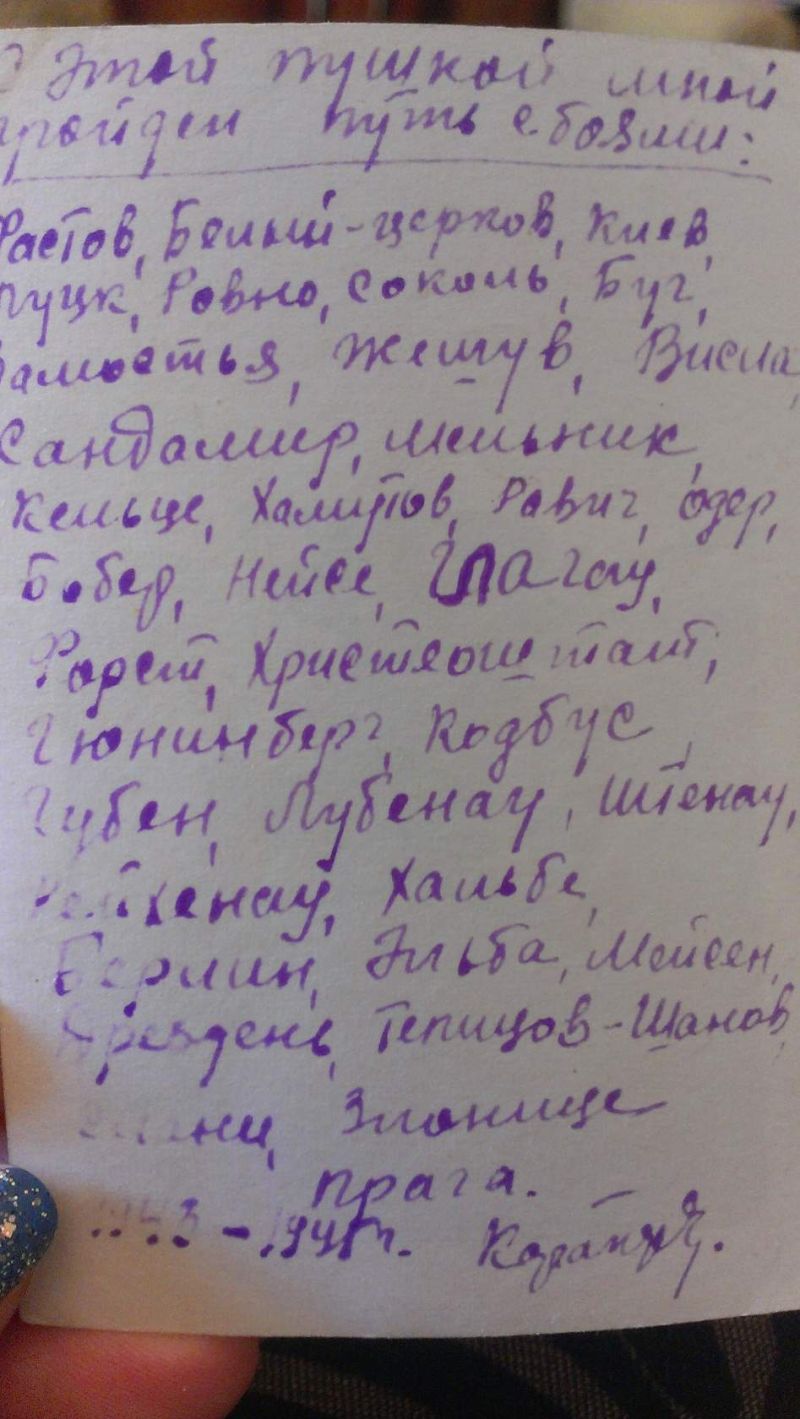 С этой пушкой мной
пройден путь с боями:
Растов, Белый-церков, Киев,
Луцк, Ровно, Соколь, Буг,
Замостья, Жешув, Висла,
Сандамир, Мельник,
Кельце, Равич, Одер,
Бобер, Нейсе, Глагау,
Форст, Христеоштат,
Гюнинберг, Кодбус,
Губен, Лубенау, Штенау,
Рейхенау, Хальбе,
Берлин, Эльба, Мейсен,
Дрезден, Теплицов-Шанов,
Злонице
Прага.
1943-1945г.